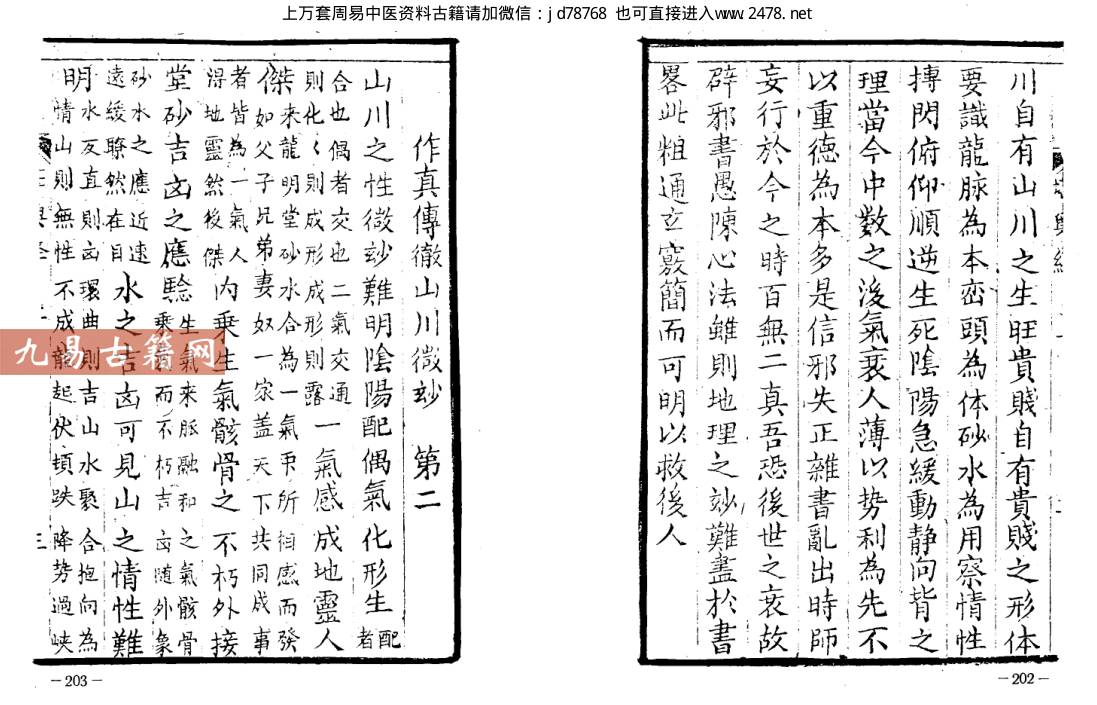 上万套周易中医资料古籍请加微信：jd78768 也可直接进入www.2478.net
川自有山川之生旺貴賤自有貴賤之形体
要識龍脉為本巒頭為体砂水為用察情性
摶閃俯仰順逆生死陰陽急緩動静向背之
理當今中數之後氣衰人薄以势利為先不
以重德為本多是信邪失正雜書亂出時師
妄行於今之時百無二真吾恐後世之衰故
辟邪書愚陳心法雖則地理之妙難盡於書
畧此粗通玄竅簡而可明以救後人
作真傳徹山川微玅 第二
山川之性微玅難明陰陽配偶氣化形生配者
合也偶者交也二氣交通則化〻則成形成形則露一氣感成地靈人
傑來龍明堂砂水合為一氣所相感而發如父子兄弟妻奴一家盖天下共同成事
者皆為一氣人得地靈然後傑内乘生氣骸骨之不朽外接
堂砂吉凶之應驗生氣來脈融和之氣骸骨乘貴而不朽吉凶随外象
砂水之應近速遠緩聮然在自水之吉凶可見山之情性難
明水反直則凶環曲則吉山水聚合抱向為情山則無性不成龍起伏頓跌降势過峡
九易古籍网
－203－
－202－